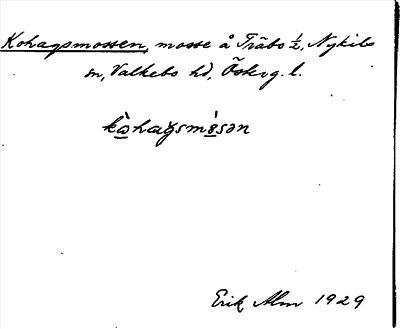 Kohagsmossen, mosse å Träbo ½, Nykils
sn, Valkebo hd, Österg. l.
kòhagsmósən
Erik Alm 1929